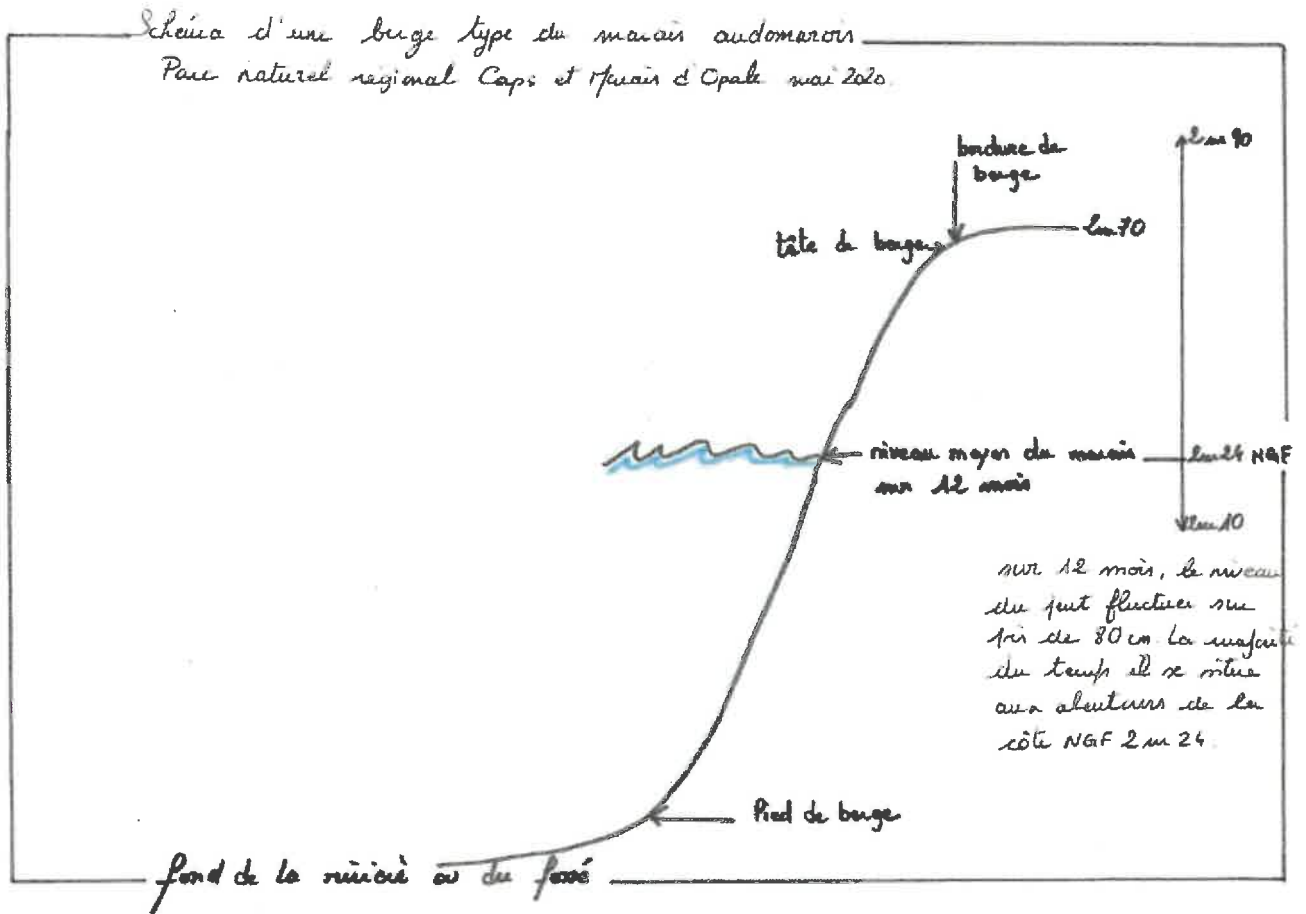 Schéma d'une berge type du marais audomarois
Parc naturel regional Caps et Marais d'Opale mai 2020
2m90
bordure de
berge
tête de berge
2m70
niveau moyen du marais
sur 12 mois
2m24 NGF
2m10
sur 12 mois, le niveau
du peut fluctuer sur
près de 80 cm La majorité
du temps il se situe
aux alentours de la
côte NGF 2m24
Pied de berge
fond de la rivière ou du fossé